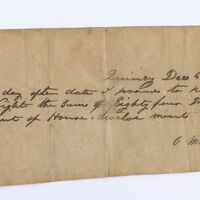 Quincy Dec 6
day after date I promis to p
ight the Sum of Eighty four D
ent of House. twelve mont
C M